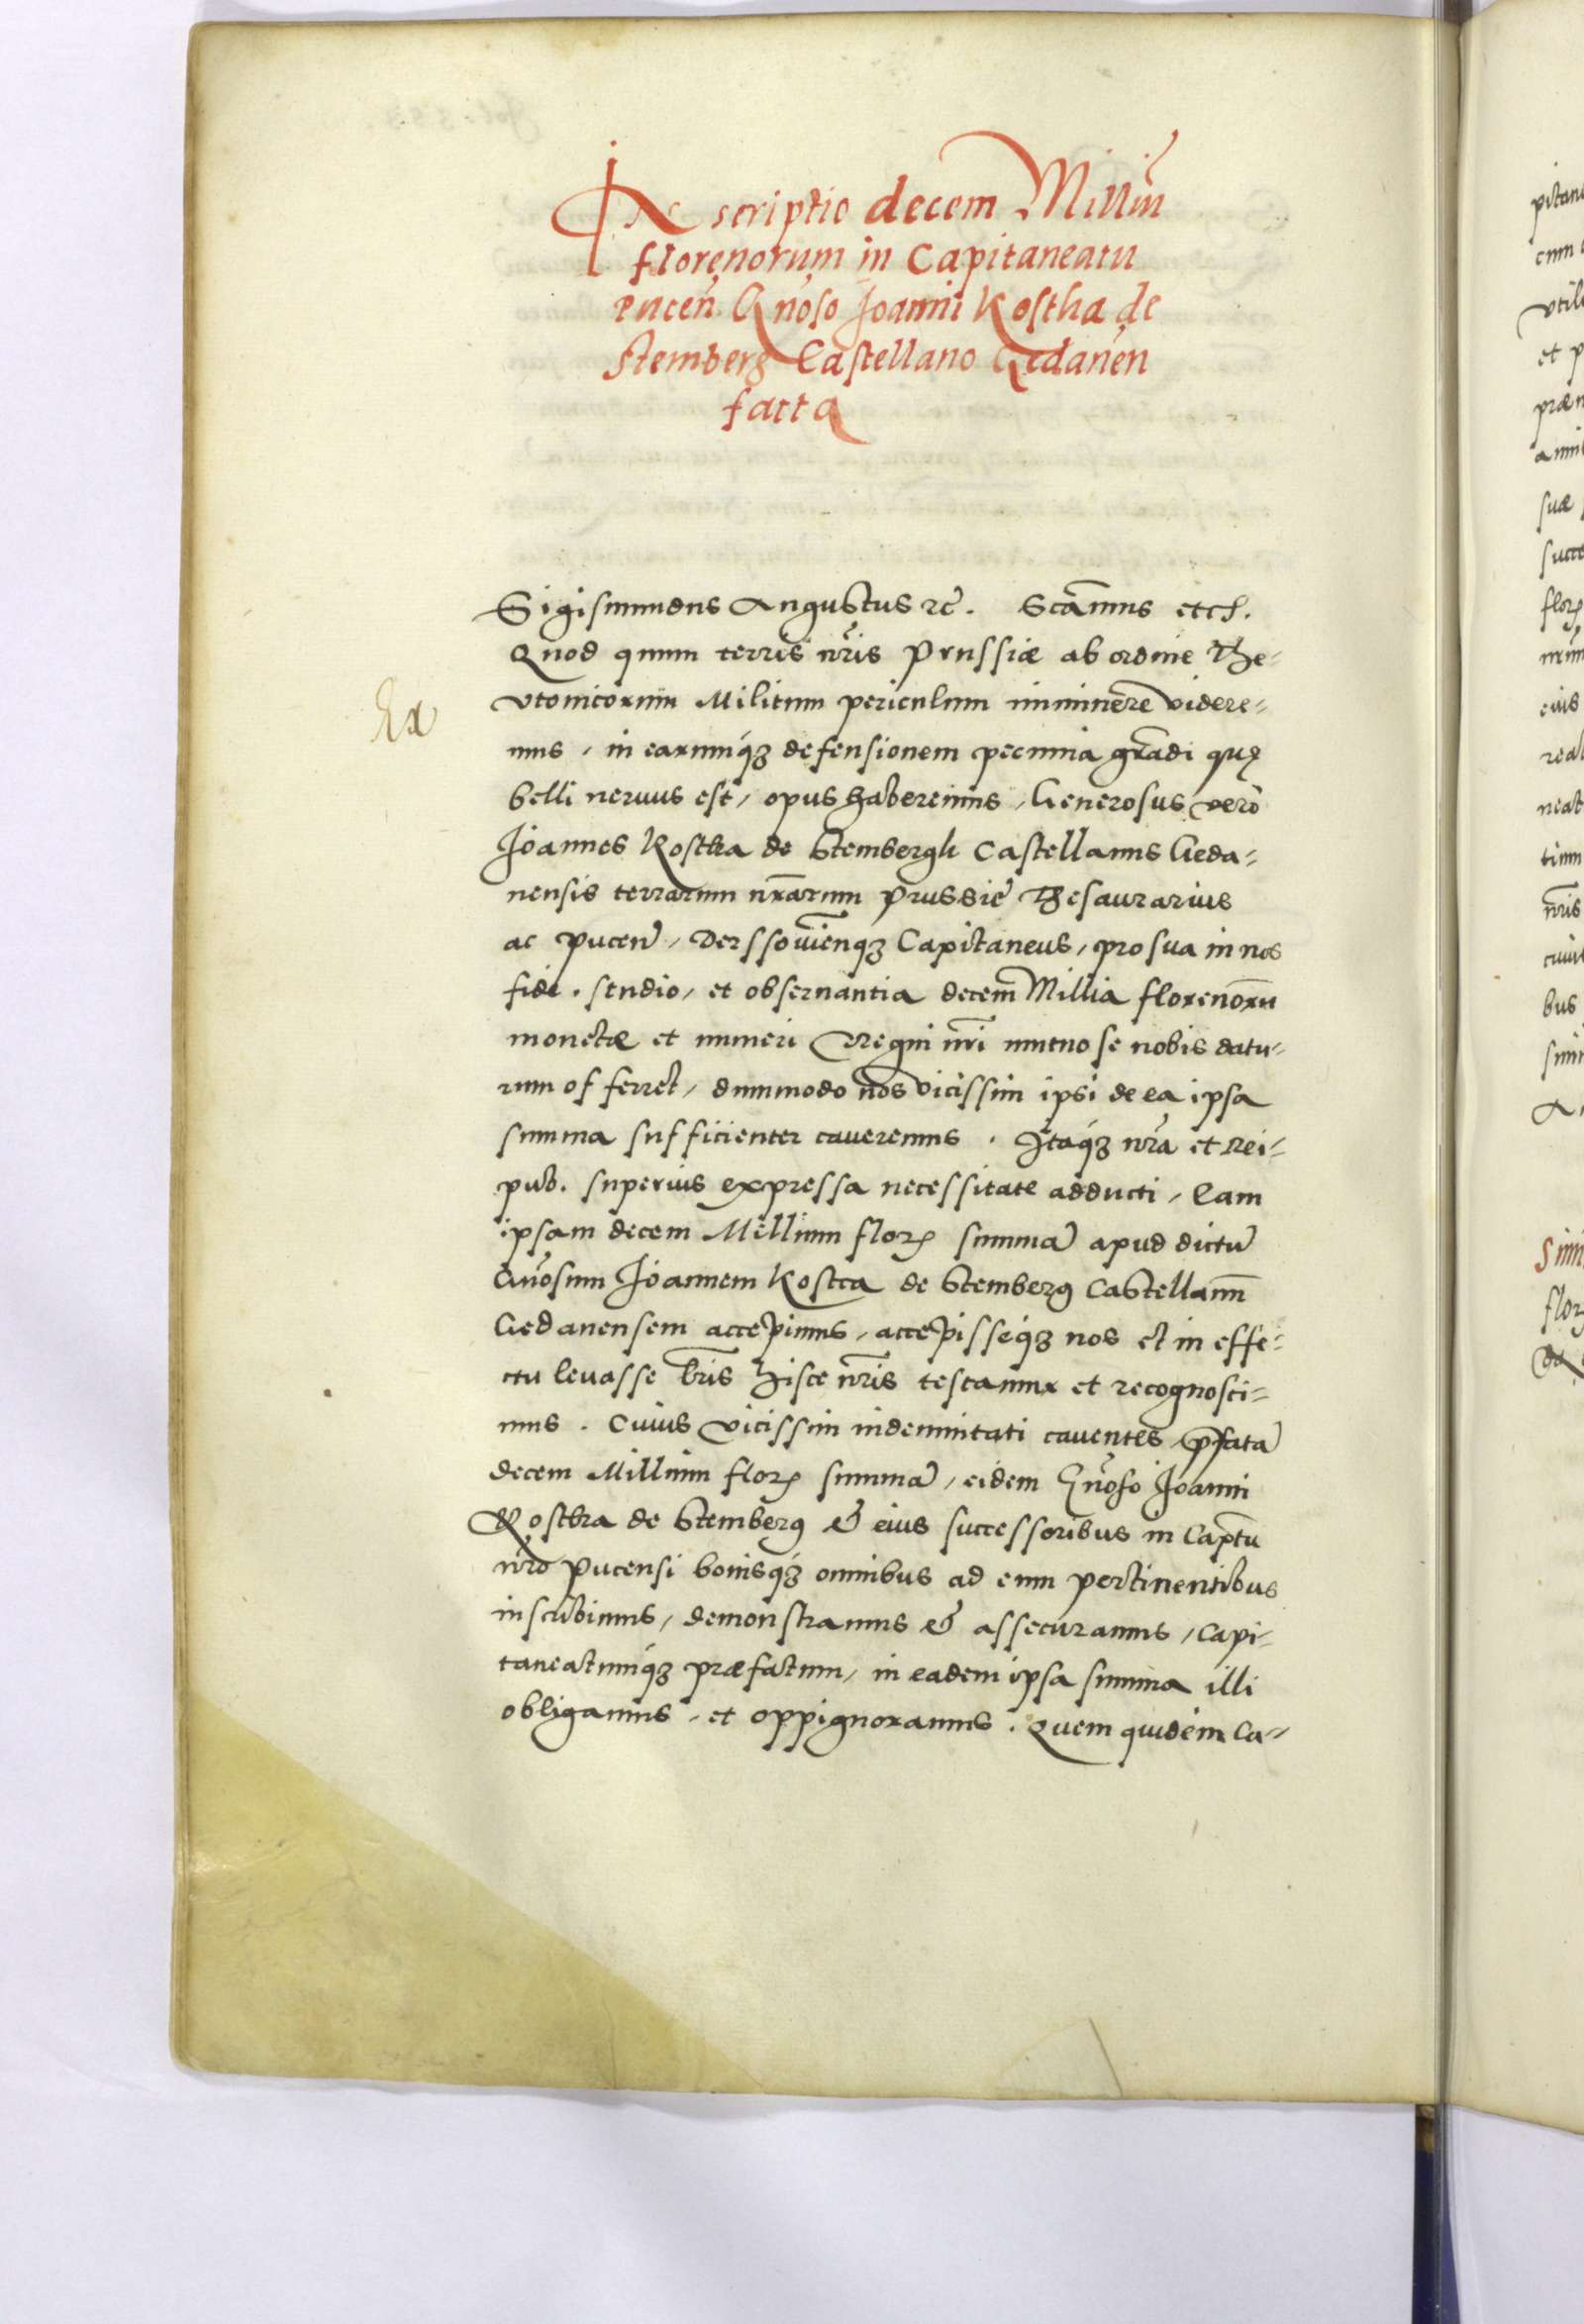 Rescriptio decem Milliũ
florenorum in Capitaneatu
pucen̄. Gñoso Joanni Kostha de
Stemberg Castellano Gedanen̄
facta
Sigismundus Augustus ꝛc̃. Sc̃amus etcꝭ.
Quod quum terris nr̃is Prussiæ ab ordine The-
utonicorum Militum periculum imminere videre-
mus, in earumq́ꝫ defensionem pecunia grãdi quę
belli neruus est, opus haberemus, Generosus verò
Joannes Kostka de Stembergk Castellanus Geda-
nensis terrarum nr̃arum Prussię Thesaurarius
ac pucen̄, Derssouien̄qꝫ Capitaneus, pro sua in nos
fide, studio, et obseruantia decem Millia florenorũ
monetæ et numeri Regni nr̃i mutuo se nobis datu-
rum offerret, dummodo nos vicissim ipsi de ea ipsa
summa sufficienter caueremus. Itaq́ꝫ nr̃a et Rei-
pub. superius expressa necessitate adducti, Eam
ipsam decem Millium floꝝ summã apud dictũ
Gñosum Joannem Kostca de Stemberg Castellanũ
Gedanensem accepimus, accepisseq́ꝫ nos et in effe-
ctu leuasse lr̃is hisce nr̃is testamur et recognosci-
mus. Cuius vicissim indemnitati cauentes, p̃fatã
decem Millium floꝝ summã, eidem Gñoso Joanni
Kostka de Stemberg & eius successoribus in Cap̃tu
nr̃o Pucensi bonisq́ꝫ omnibus ad eum pertinentibus
inscribimus, demonstramus & assecuramus, Capi-
taneatumq́ꝫ præfatum, in eadem ipsa summa illi
obligamus, et oppignoramus. Quem quidem Ca-
Ex